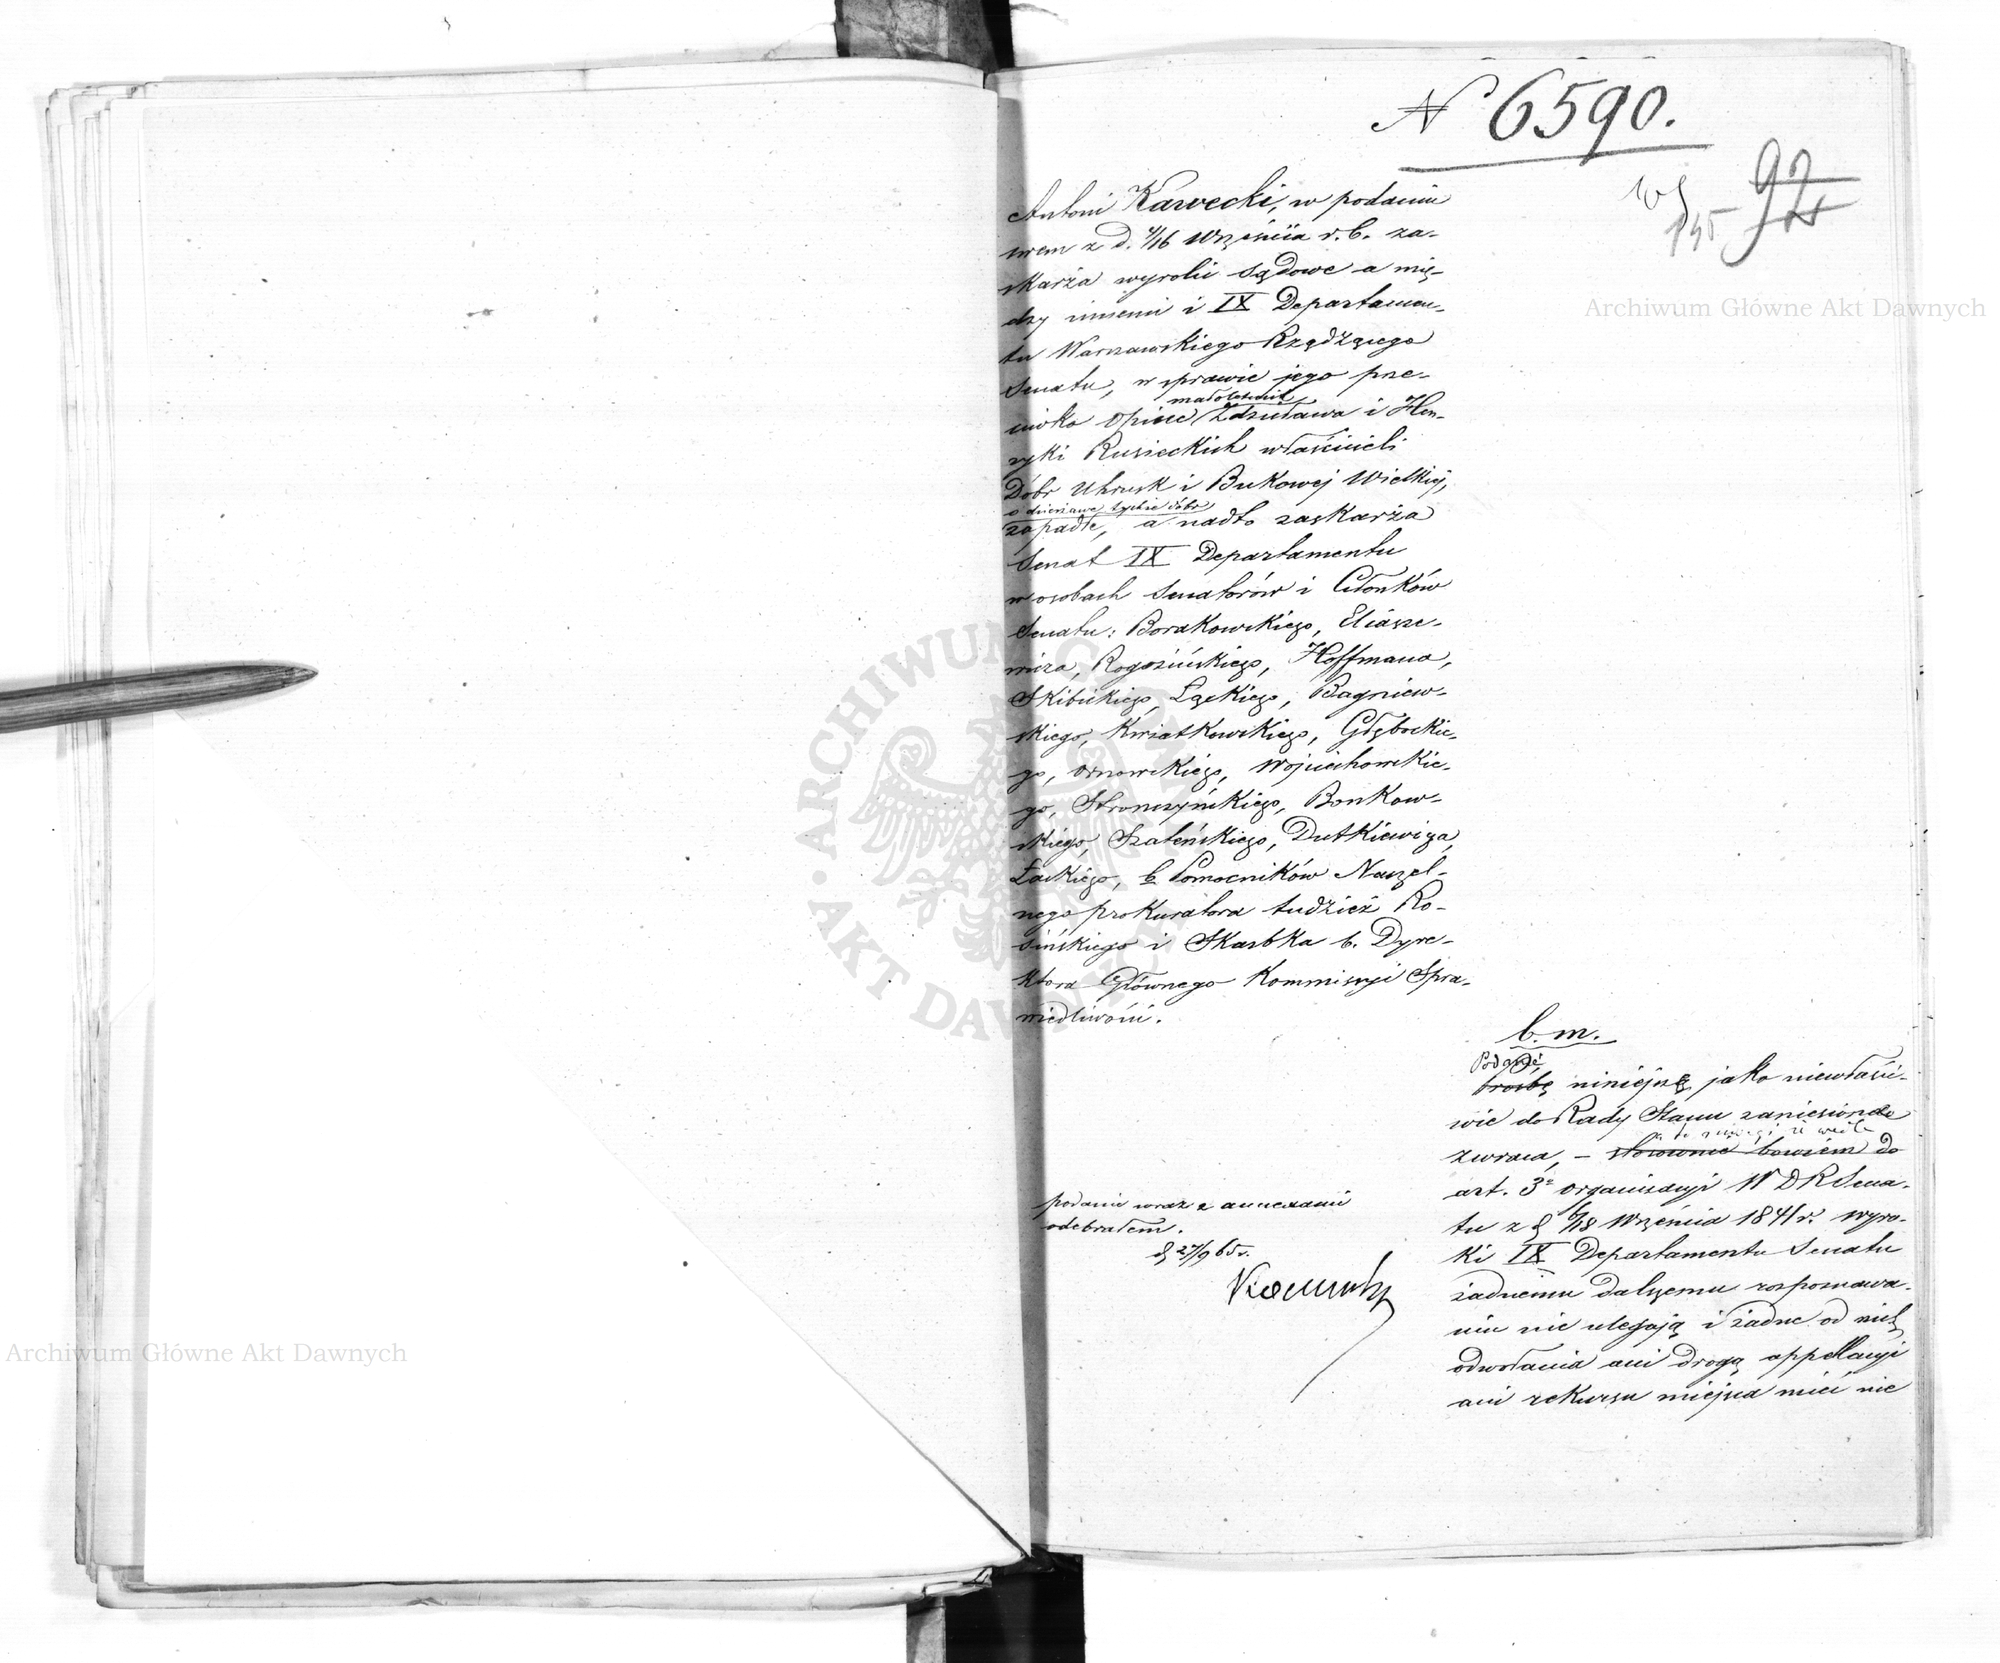 N 6590.
97
Antoni Kawecki, w podaniu
swem z d. 4/16 Września r.b. za-
skarża wyroki sądowe a mię-
dzy innemi i IX Departamen-
tu Warszawskiego Rządzącego
Senatu, w sprawie jego prze-
małoletnich
ciwko opiece Zdzisława i Hen-
ryki Rusieckich właścicieli
Dóbr Uhrusk i Bukowej Wielkiej,
o dzierżawę tychże dóbr
zapadłe, a nadto zaskarża
Senat IX Departamentu
w osobach Senatorów i Członków
Senatu: Borakowskiego, Eliasze-
wicza, Rogozińskiego, Hoffmana,
Skibickiego, Łąckiego, Bagniew-
skiego, Kwiatkowskiego, Głębockie-
go, Ornowskiego, Wojciechowskie-
go, Stronczyńskiego, Bonkow-
skiego, Szaleńskiego, Dutkiewicza,
Łaskiego, b. Pomocników Naczel-
nego prokuratora tudzież Ro-
sińskiego i Skarbka b. Dyre-
ktora Głównego Kommissyi Spra-
wiedliwości.
b.m.
Podanie
prośbę niniejszę jako niewłaści-
wie do Rady Stanu zaniesione
zwraca, – stosownie bowiem do
art. 3º organizacyi W D R Sena-
tu z d 6/18 Września 1841 r. wyro-
ki IX Departamentu Senatu
żadnemu dalszemu rozpoznawa-
niu nie ulegają i żadne od nich
odwołania ani drogą appellacyi
ani rekursu miejsca mieć nie
podanie wraz z annexami
odebrałem.
d 27/9 65 r.
Archiwum Główne Akt Dawnych
Archiwum Główne Akt Dawnych
ARCHIWUM GŁÓWNE AKT DAWNYCH